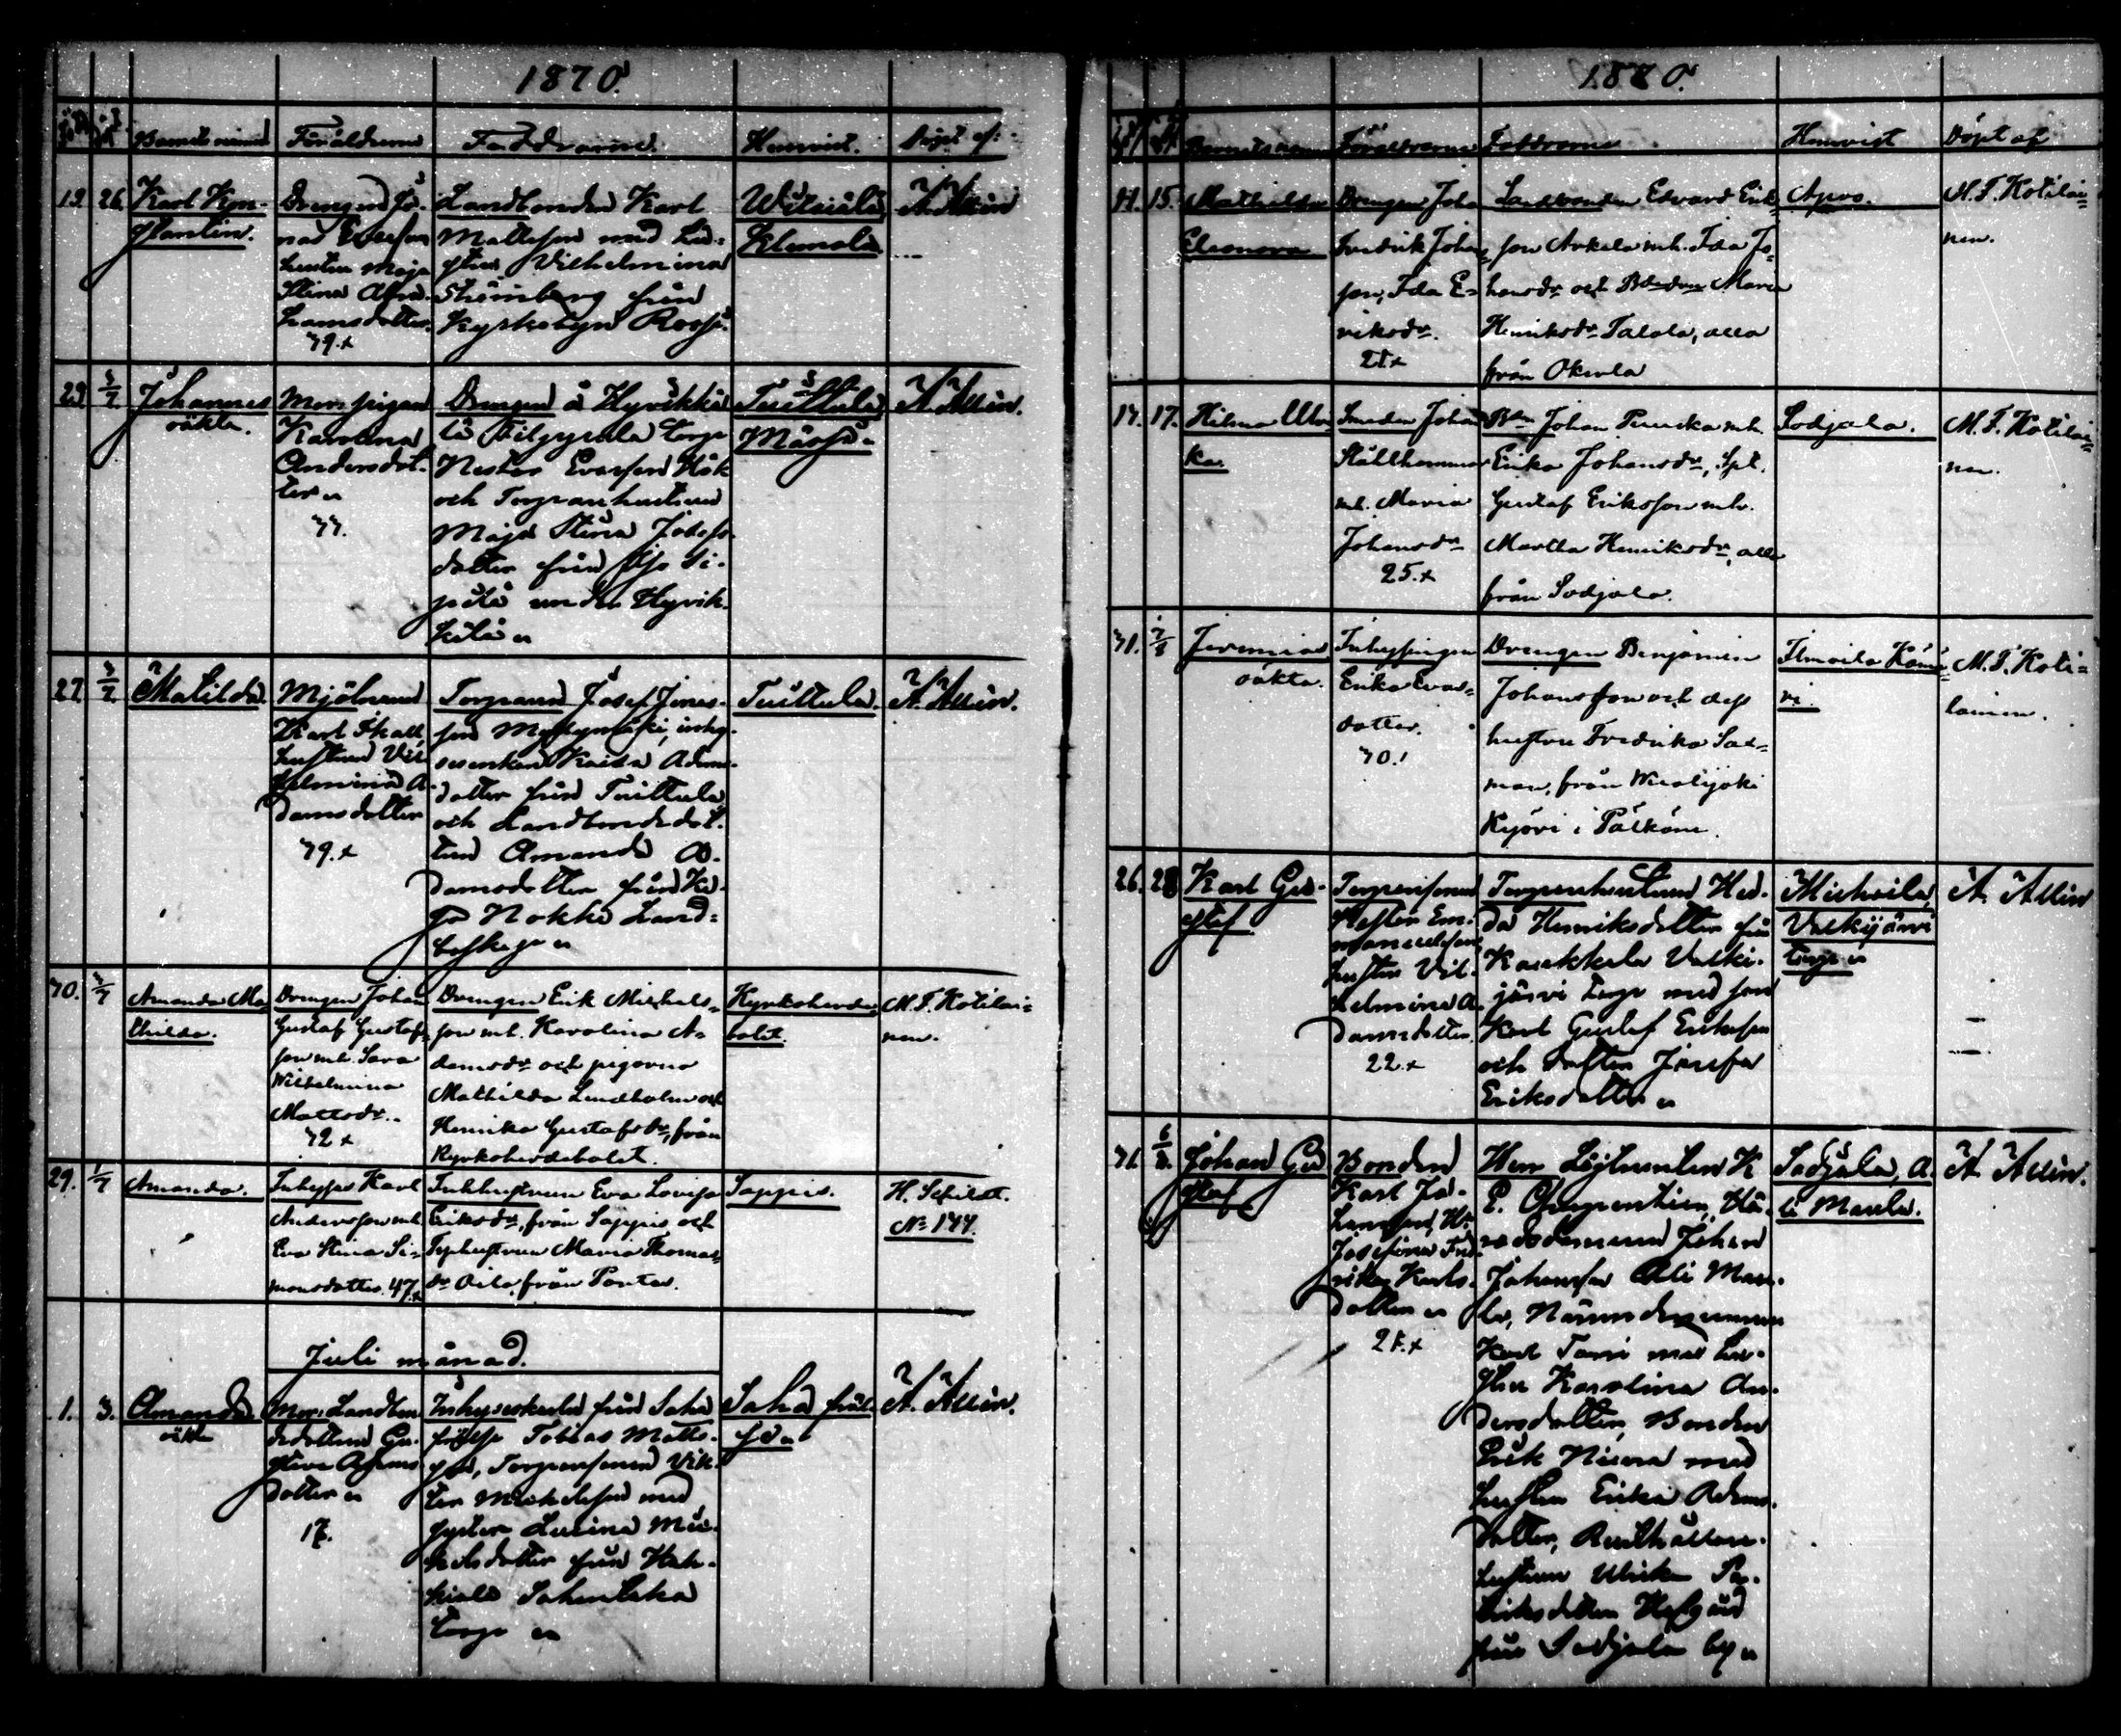 1870.
Barnets namn Föräldrarne Faddrarne Hemvist. Döpt af:
19. 26. Karl Kon-
stantin.
Drengen
hustrun Maja
Stina Abra-
hamsdotter.
39.x
Landbonden Karl
Mattsson med hu-
strun Vilhelmina
Strömberg från
Kyrkobyn
A. Allén
29 3/7. Johannes
oäkta.
Mor: pigan
Karolina
Andersdot-
ter
33.
Drengen å Hyvikkä-
lä torp
Nestor Evasson Hök
och Torparehustrun
Maja Stina Josefs-
dotter från
under Hyvik-
kälä
Tuittula
A. Allén.
27. 3/7. Matilda.
Mjölnaren
Karl Skatt,
hustrun Vil-
helmina A-
damsdotter
39.x
Torparen Josef Jonas-
son Myllymäki, inhy-
sesenkan Kaisa Adams-
dotter från Tuittula
och Landbondedot-
tren Amanda A-
damsdotter från
Nokka Land-
Tuittula.
A. Allén.
30. 3/7 Amanda Ma-
thilda.
Drengen Johan
Gustaf Gustafs-
son mh. Sara
Wilhelmina
Mattsdr.
32 x
Drengen Erik Michels-
son mh. Karolina A-
damsdr och pigorna
Mathilda Lindholm och
Henrika Gustafsdr, från
Kyrkoherdebolet.
Kyrkoherde-
bolet.
M. F. Kotilai-
nen.
29. 1/7 Amanda.
Inhyses Karl
Andersson mh
Eva Stina Si-
monsdotter. 47.x
Inhhustrun Eva Lovisa
Eriksdr, från Sappis och
Torphustrun Maria Thomas-
dr Oila, från Porkas.
Sappis.
H. Schildt.
No 144.
Juli månad.
1. 3. Amanda
oäkta
Mor: Landbon-
dedottren Gu-
stava Adams-
dotter
17.
Inhyseskarlen från Saha
frälse Tobias Matts-
son, Torparesonen Vik-
tor Mickelsson med
syster Lusina Mic-
kelsdotter från Hah-
kiala
torp
Saha fräl-
se
A. Allén.
1870.
Barnets namn Föräldrarne Faddrarne Hemvist Döpt af
11. 15. Mathilda
Eleonora
Drengen Joha
Fredrik Johans-
son, Ida E-
riksdr.
21.x
Landbonden Edvard Erik-
son Arkela mh. Ida Jo-
hansdr och Maria
Henriksdr Talala, alla
från Okerla
Ajos.
M. F. Kotilai-
nen.
14. 17. Hilma Ulri-
ka.
Smeden Johan
Stålhammar
mh. Maria
Johansdr
25.x
Johan mh.
Erika Johansdr, Spt.
Gustaf Eriksson mh.
Martha Henriksdr, alla
från Sodjala.
Sodjala.
M. F. Kotilai-
nen.
31. 7/8 Jeremias
oäkta.
Inhyspigan
Erika Evas-
dotter.
30.
Drengen Benjamin
Johansson och dess
hustru Fredrika Sax-
man, från
i Pälkäne.
M. F. Koti-
lainen.
26. 28 Karl Gu-
staf
Torparesonen
Nestor Em-
manuelsson,
hustrun Vil-
helmina A-
damsdotter
22.x
Torparehustrun Hed-
da Henriksdotter från
Kaukkala Valki-
järvi Torp med son
Karl Gustaf Eriksson
och dotter Josefa
Eriksdotter
Mickoila,
Valkijärvi
torp
A. Allén
31. 6/8. Johan Gu
staf
Bonden
Karl Jo-
hansson, Hu
Josefina Fred-
rika Karls-
dotter
21.x
Herr Löjtnanten K
P. Charpentier, Hä-
radsdomaren Johan
Johansson Ali Mau-
la, Nämndemannen
Karl Tomi med hu-
strun Karolina An-
dersdotter, Bonden
Erik Niera med
hustrun Erika Adams-
dotter, Rusthållare-
hustrun Ulrika
Eriksdotter
från Sodjala by
Sodjala, A-
li Maula.
A. Allén.